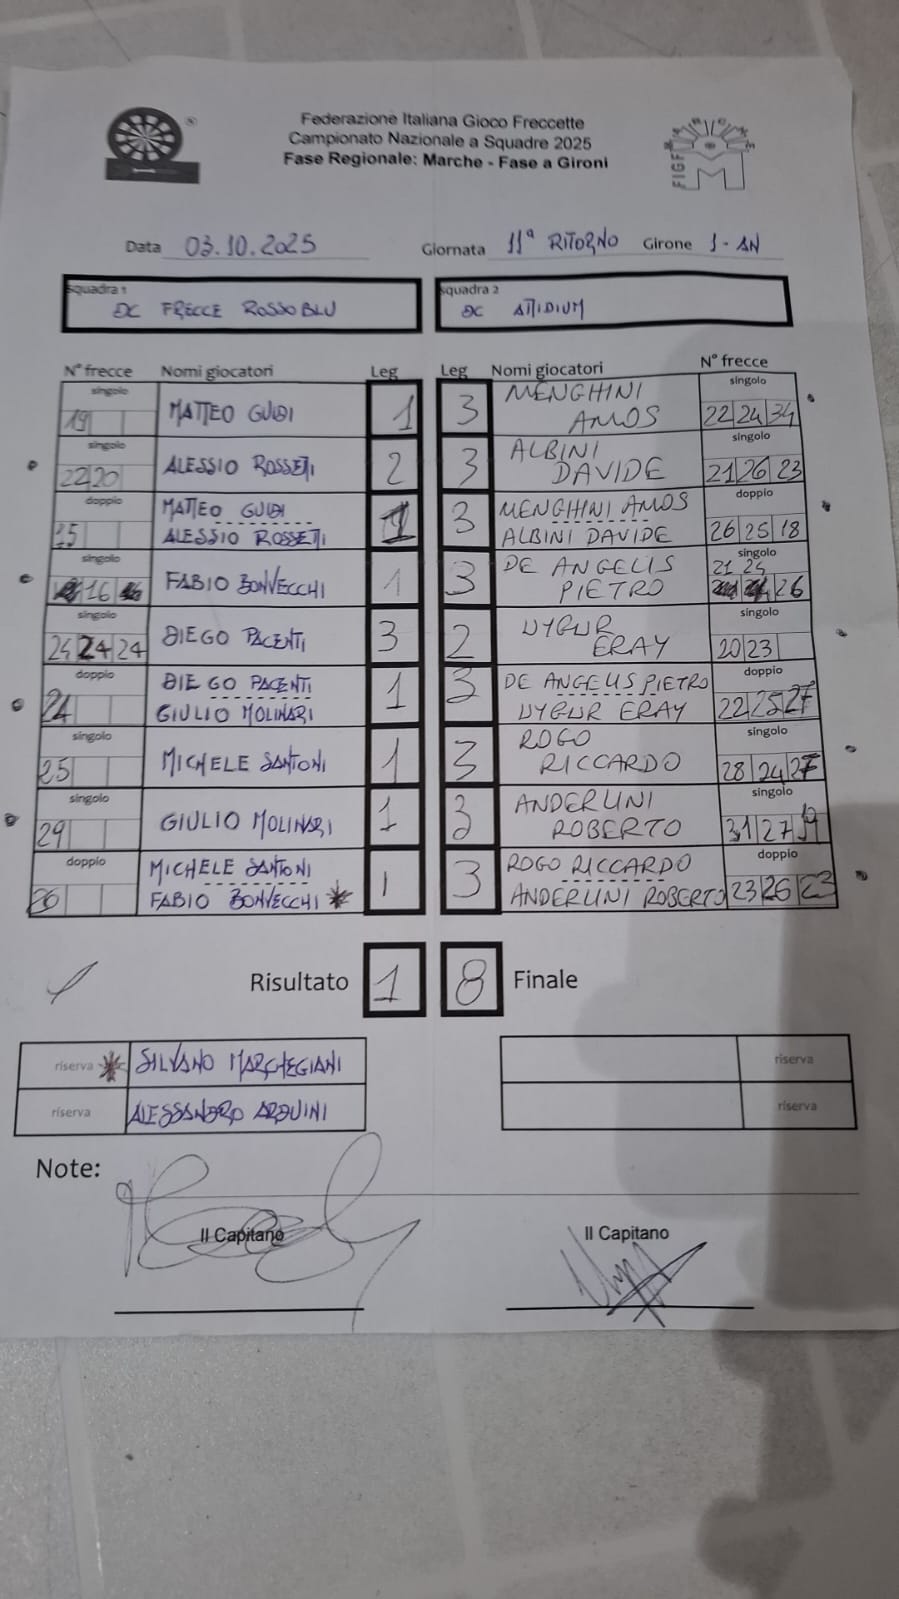 Federazione Italiana Gioco Freccette
Campionato Nazionale a Squadre 2025
Fase Regionale: Marche - Fase a Gironi
FIGF
Data 03.10.2025 Giornata 11ª RITORNO Girone 1-AN
squadra 1 squadra 2
DC FRECCE ROSSOBLU DC ATTIDIUM
N° frecce Nomi giocatori Leg Leg Nomi giocatori N° frecce
singolo MENGHINI singolo
19 MATTEO GUIDI 1 3 AMOS 22 24 34
singolo ALBINI singolo
22 20 ALESSIO ROSSETTI 2 3 DAVIDE 21 26 23
doppio MATTEO GUIDI MENGHINI AMOS doppio
ALESSIO ROSSETTI 1 3 ALBINI DAVIDE 26 25 18
singolo DE ANGELIS singolo
16 FABIO BONVECCHI 1 3 PIETRO 21 24 26
singolo UYGUR singolo
24 24 24 DIEGO PACENTI 3 2 ERAY 20 23
doppio DIEGO PACENTI DE ANGELIS PIETRO doppio
24 GIULIO MOLINARI 1 3 UYGUR ERAY 22 25 27
singolo ROGO singolo
25 MICHELE SANTONI 1 3 RICCARDO 28 24 27
singolo ANDERLINI singolo
29 GIULIO MOLINARI 1 3 ROBERTO 31 27 19
doppio MICHELE SANTONI ROGO RICCARDO doppio
26 FABIO BONVECCHI * 1 3 ANDERLINI ROBERTO 23 26 23
Risultato 1 8 Finale
riserva * SILVANO MARCHEGIANI riserva
riserva ALESSANDRO ARDUINI riserva
Note:
Il Capitano Il Capitano